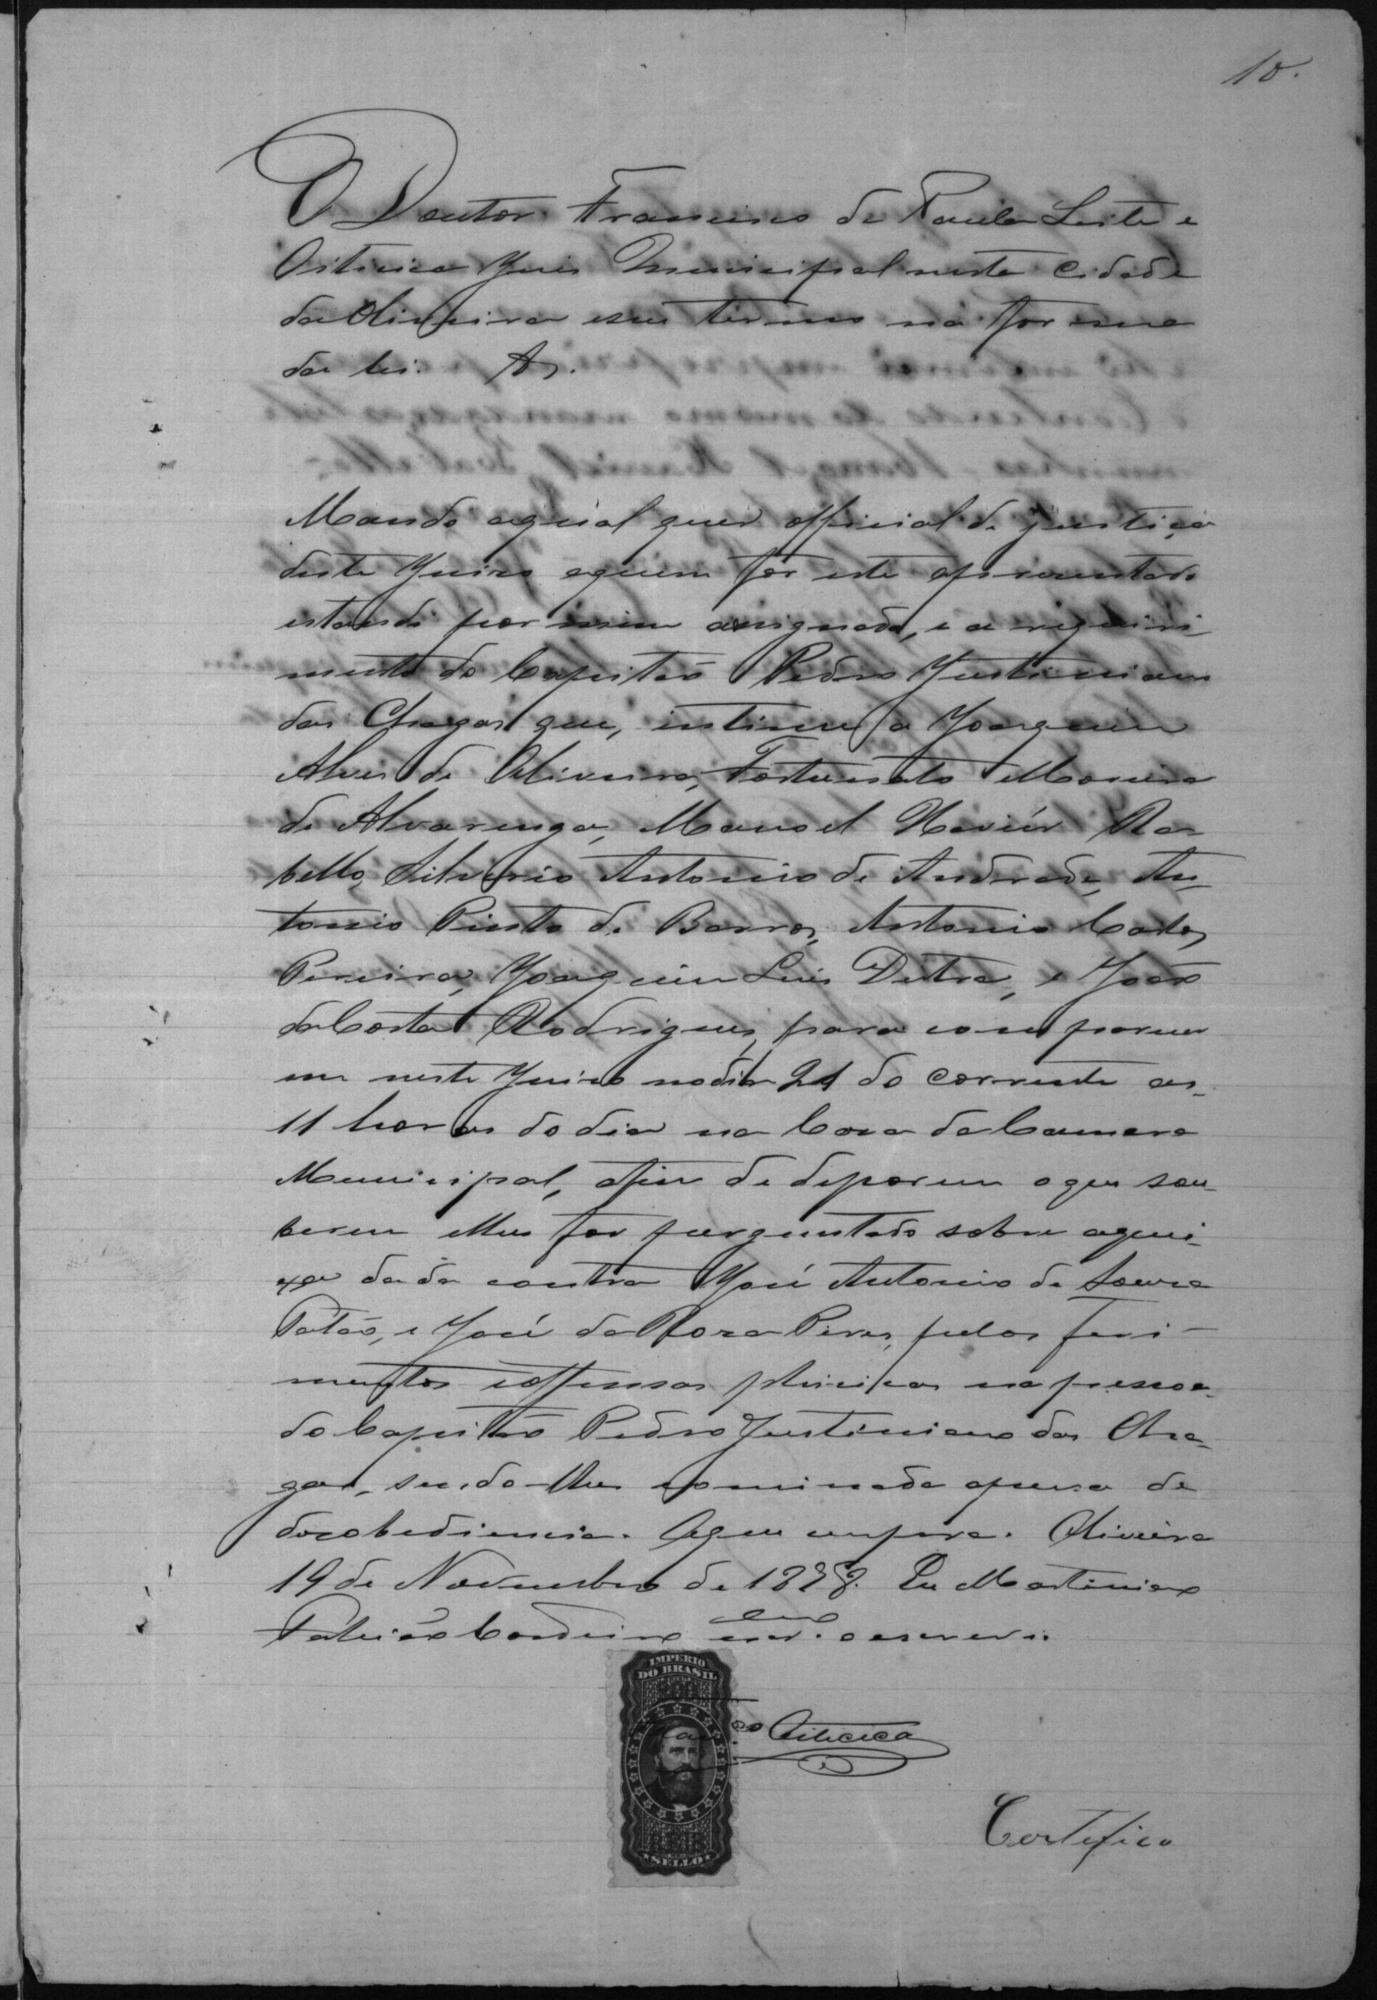 10.
O Doutor Francisco de Paula Leite e
Oiticica Juis Municipal nesta Cidade
da Oliveira eseu termo na forma
da lei. &.
Mando aqual quer official de justiça
deste Juizo aquem for este apresentado
estando por mim assignado, e a requiri
mento do Capitão Pedro Justiniano
das Chagas que, intime a Joaquim
Alves de Oliveira, Fortunato Moreira
de Alvarenga, Manoel Xavier Ra-
bello, Silverio Antonio de Andrade, An-
tonio Pinto de Barros, Antonio Carlos
Pereira, Joaquim Luis Dutra, e João
daCosta Rodrigues, para comparecer
em neste Juizo nodia 21 do corrente as
11 horas do dia na Caza da Camara
Municipal, afim de deporem oque sou-
berem elhes for perguntado sobre aquei-
xa dada contra José Antonio de Souza
Patão, e José da Roza Peres, pelos feri-
mentos eoffensas phisicas na pessoa
do Capitão Pedro Justiniano das Cha-
gas, sendo-lhes cominada apena de
dezobediencia. Oque cumpra. Oliveira
19 de Novembro de 1878. Eu Martiniano
Cordeiro escr. oescrevi.
IMPERIO
DO BRASIL
Oiticica
SELLO
Certifico